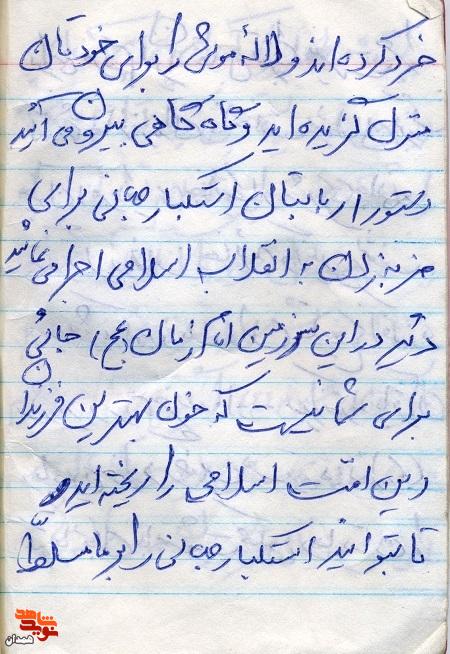 خرد کرده‌اند و لانهٔ موش را برای خودتان
منزل گزیده‌اید و گاه گاهی بیرون می‌آئید
دستور اربابتان استکبار جهانی برای
ضربه زدن به انقلاب اسلامی اجرا می‌نمائید
دیگر در این سرزمین امام زمان (عج) جائی
برای شما نیست که خون بهترین فرزندان
این امت اسلامی را ریخته‌اید
تا بتوانید استکبار جهانی را بر ما مسلط
نوید شاهد
همدان